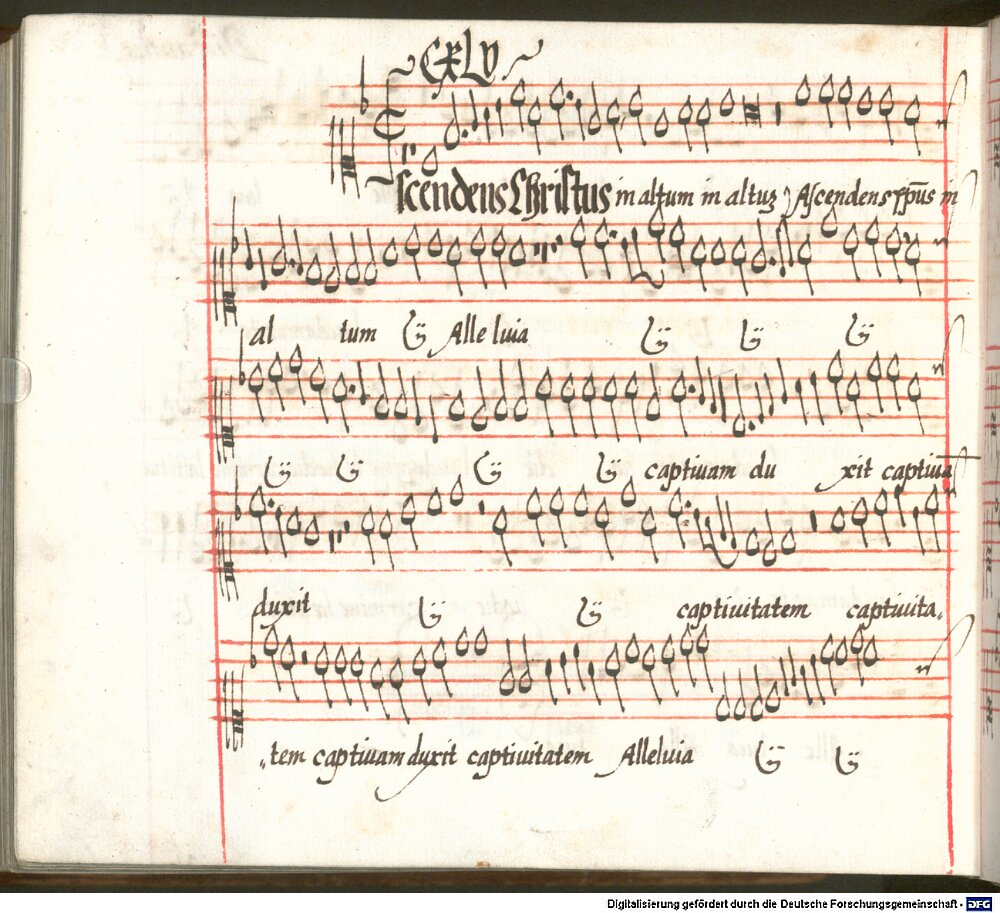 CXLV
AscendensChristus in altum in altuȝ Ascendens xp̄us in
al tum ij Alleluia ij ij ij
ij ij ij ij captiuam du xit captiua
duxit ij ij captiuitatem captiuita,
,,tem captiuam duxit captiuitatem Alleluia ij ij
Digitalisierung gefördert durch die Deutsche Forschungsgemeinschaft - DFG